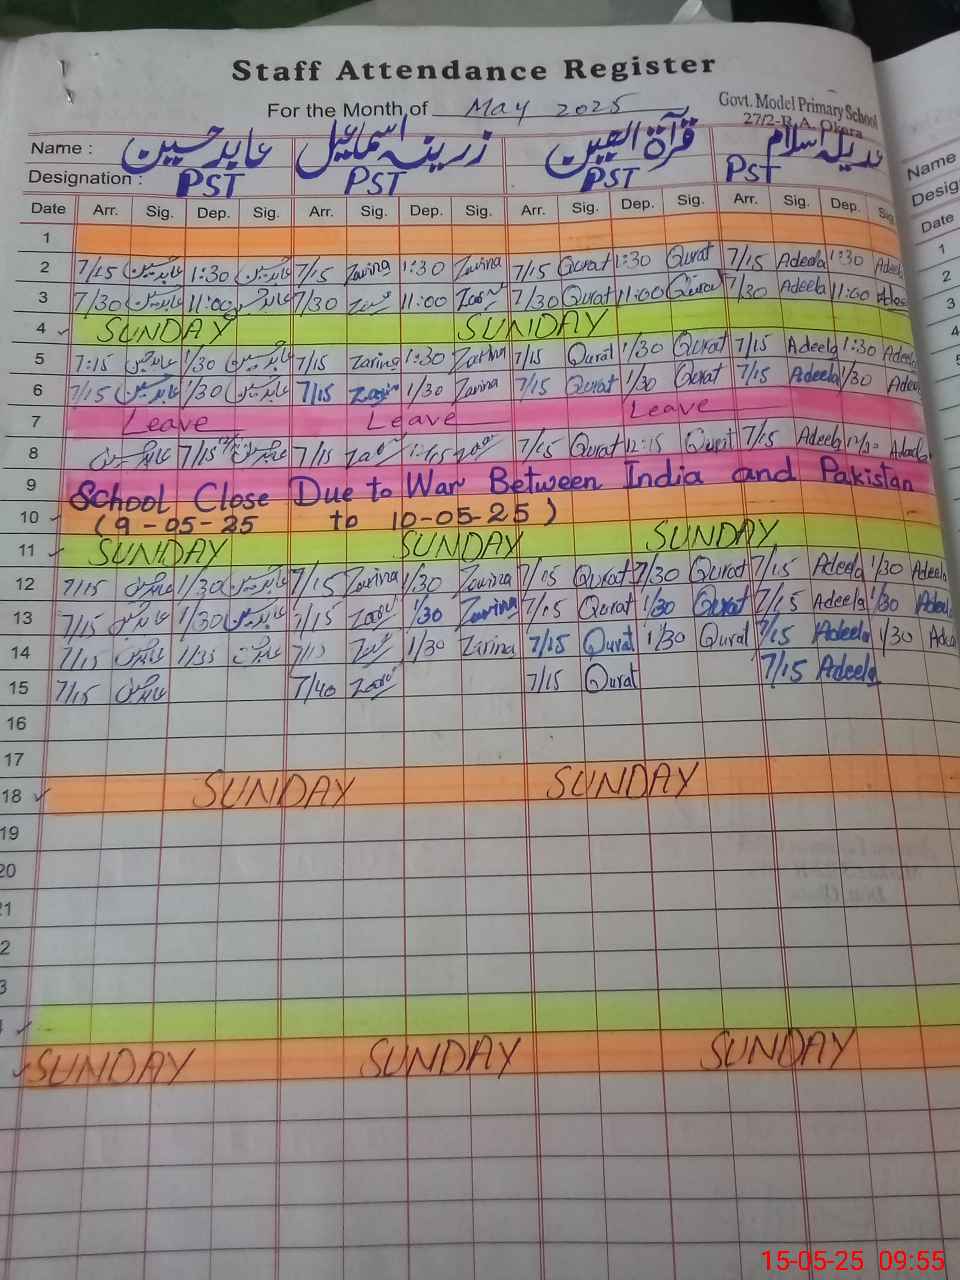 Staff Attendance Register
For the Month of May 2025
Govt. Model Primary School
27/2-R.A. Okara
Name : عابد حسین زرینہ اسماعیل قرۃ العین عدیلہ اسلام
Designation : PST PST PST PST
Name
Date Arr. Sig. Dep. Sig. Arr. Sig. Dep. Sig. Arr. Sig. Dep. Sig. Arr. Sig. Dep. Sig.
Date
1
2 7/15 عابد حسین 1:30 عابد حسین 7/15 Zarina 1:30 Zarina 7/15 Qurat 1:30 Qurat 7/15 Adeela 1:30 Adeela
3 7/30 عابد حسین 11:00 عابد حسین 7/30 11:00 7/30 Qurat 11:00 Qurat 7/30 Adeela 11:00
4 SUNDAY SUNDAY
5 7:15 عابد حسین 1/30 عابد حسین 7/15 Zarina 1:30 Zarina 7/15 Qurat 1/30 Qurat 7/15 Adeela 1:30 Adeela
6 7/15 عابد حسین 1/30 عابد حسین 7/15 Zarina 1/30 Zarina 7/15 Qurat 1/30 Qurat 7/15 Adeela 1/30 Adee
7 Leave Leave Leave
8 عابد حسین 7/15 عابد حسین 7/15 7/15 Qurat 12:15 Qurat 7/15 Adeela Adeela
9 School Close Due to War Between India and Pakistan
10 (9-05-25 to 10-05-25)
11 SUNDAY SUNDAY SUNDAY
12 7/15 عابد حسین 1/30 عابد حسین 7/15 Zarina 1/30 Zarina 7/15 Qurat 1/30 Qurat 7/15 Adeela 1/30 Adeela
13 7/15 عابد حسین 1/30 عابد حسین 7/15 1/30 Zarina 7/15 Qurat 1/30 Qurat 7/15 Adeela 1/30 Adeel
14 7/15 عابد حسین 7/15 1/30 Zarina 7/15 Qurat 1/30 Qurat 7/15 Adeela 1/30 Adee
15 7/15 عابد حسین 7/40 7/15 Qurat 7/15 Adeela
16
17
18 SUNDAY SUNDAY
19
20
21
2
3
SUNDAY SUNDAY SUNDAY
15-05-25 09:55